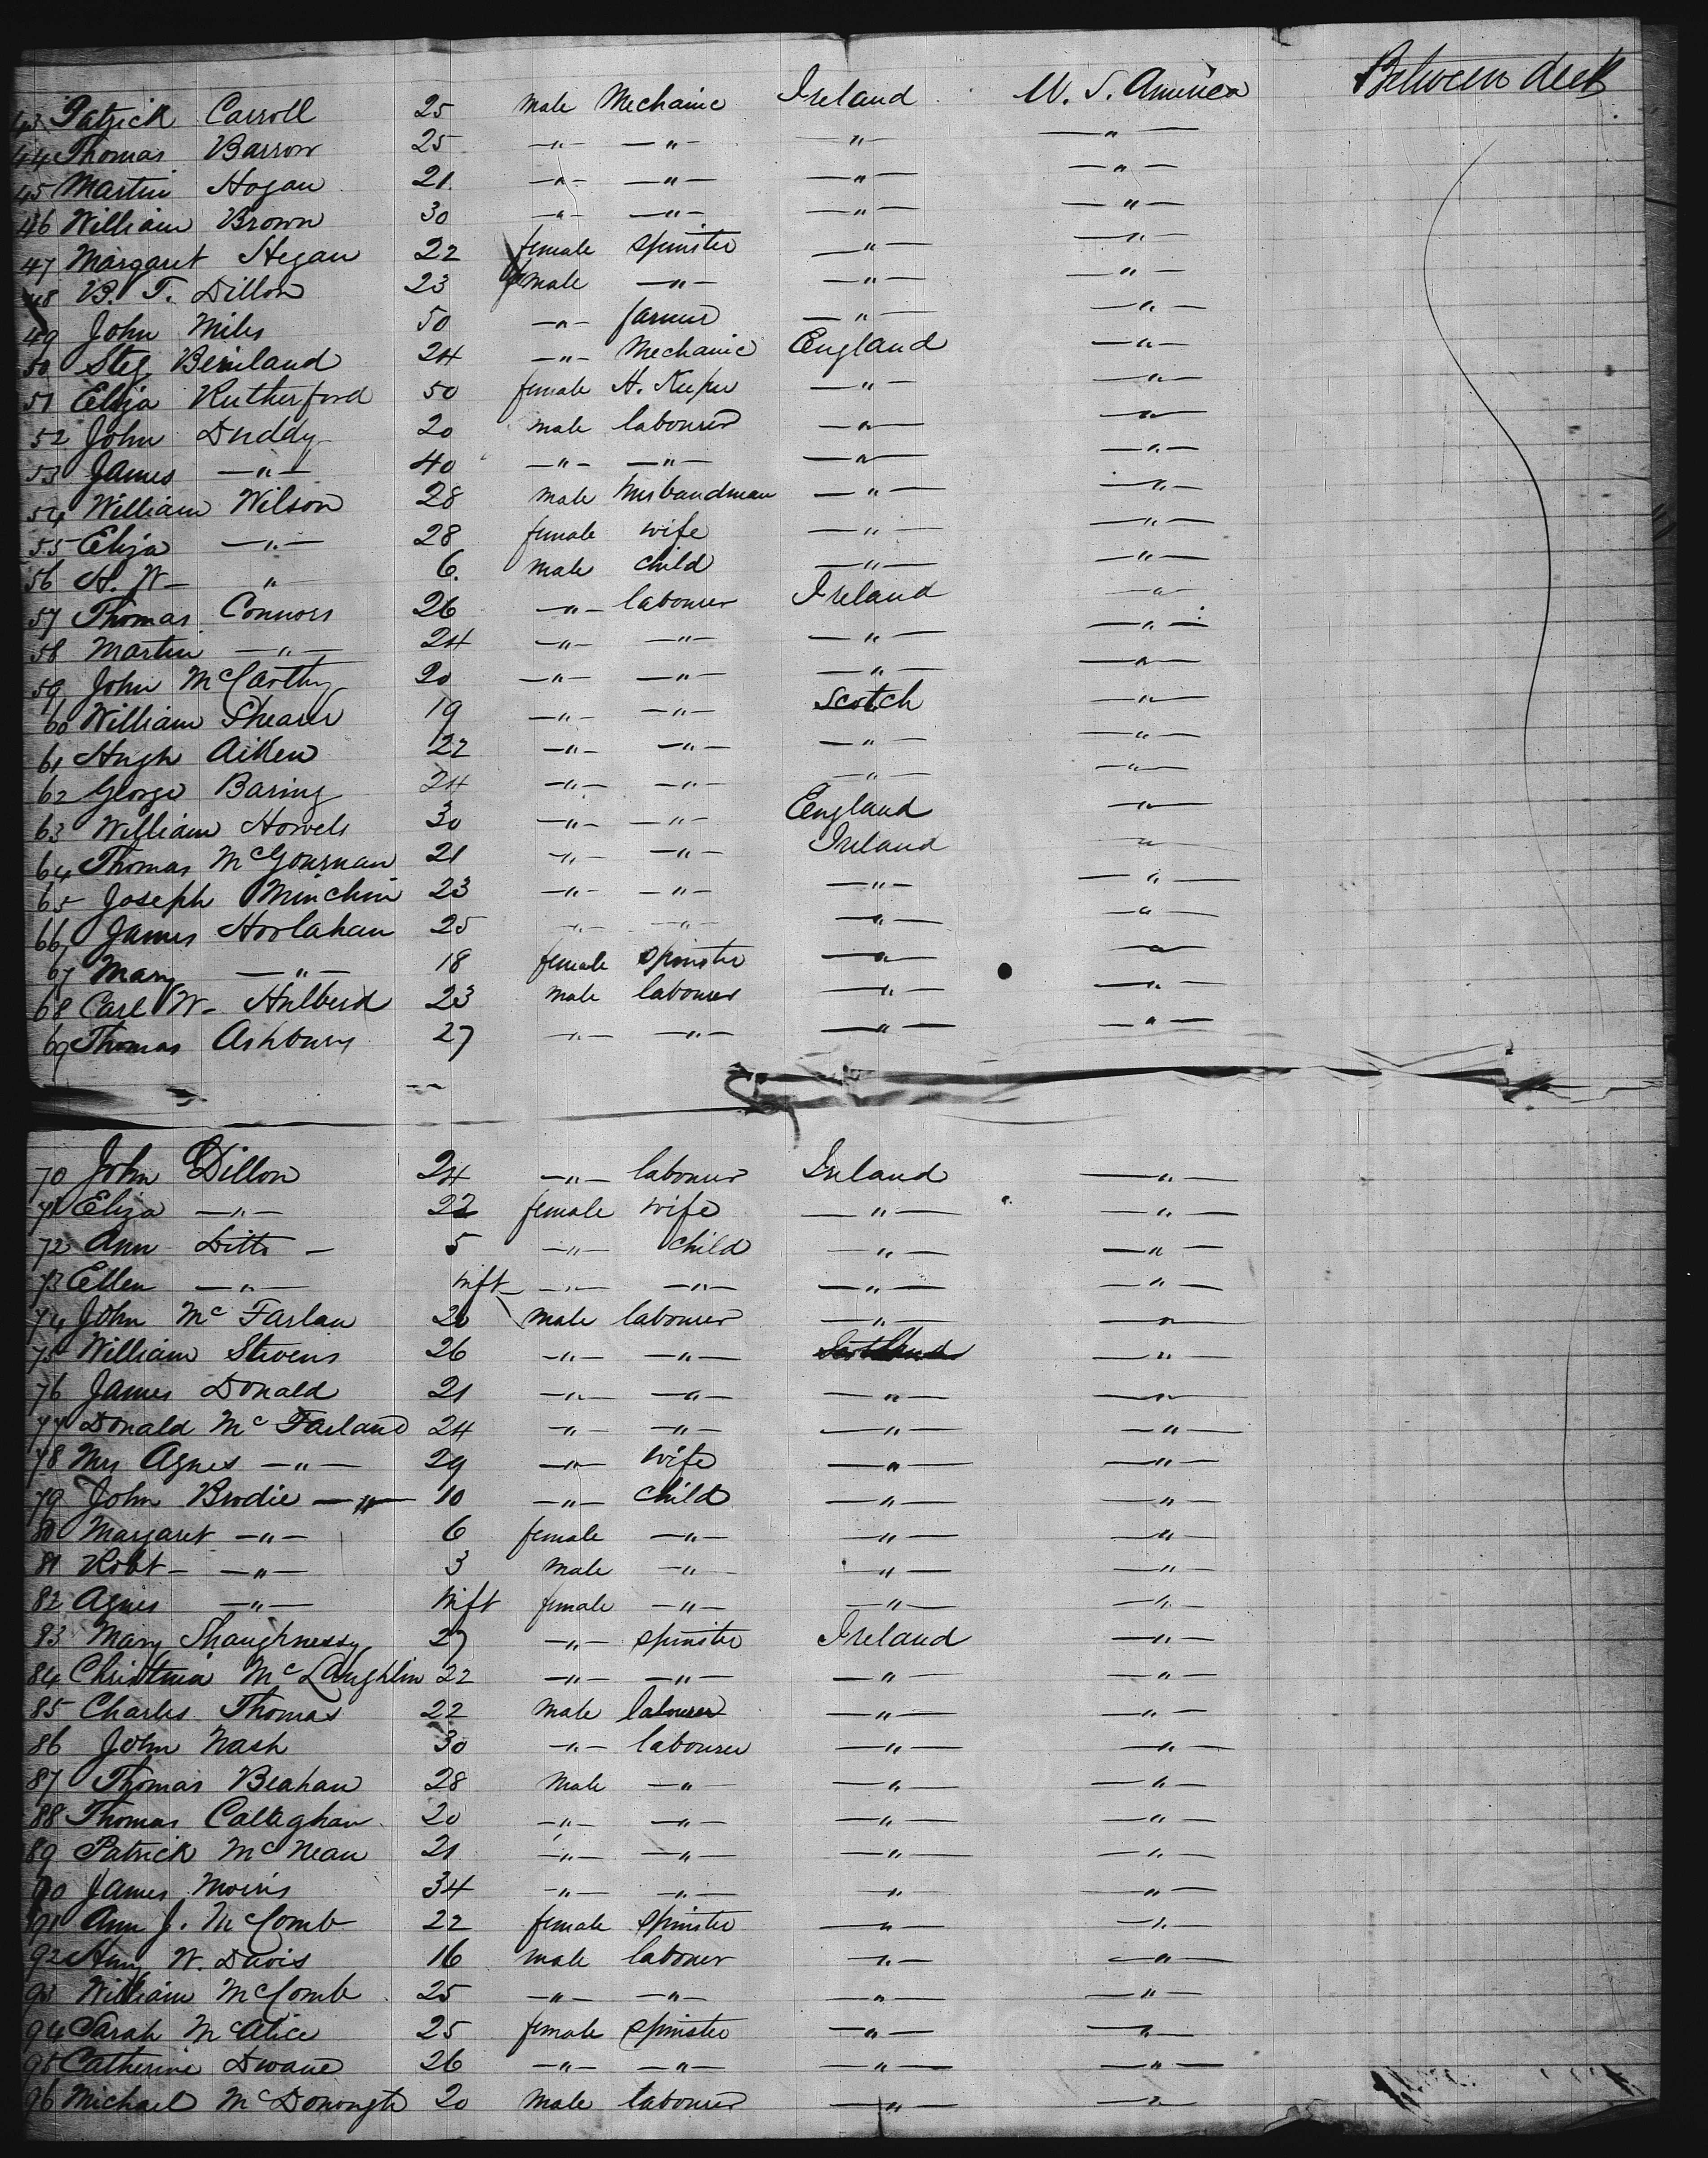 43 Patrick Carroll 25 male Mechanic Ireland U. S. America Between deck
44 Thomas Barron 25 —"— —"— —"— —"—
45 Martin Hogan 21 —"— —"— —"— —"—
46 William Brown 30 —"— —"— —"— —"—
47 Margaret Hegan 22 female spinster —"— —"—
48 B. T. Dillon 23 male —"— —"— —"—
49 John Miles 50 —"— farmer —"— —"—
50 24 —"— Mechanic England —"—
51 Eliza Rutherford 50 female H. Keeper —"— —"—
52 John Duddy 20 male labourer —"— —"—
53 James —"— 40 —"— —"— —"— —"—
54 William Wilson 28 male husbandman —"— —"—
55 Eliza —"— 28 female wife —"— —"—
56 H. W— " 6. male child —"— —"—
57 Thomas Connors 26 —"— labourer Ireland —"—
58 Martin —"— 24 —"— —"— —"— —"—
59 John McCarthy 20 —"— —"— —"— —"—
60 William Shearer 19 —"— —"— Scotch —"—
61 Hugh Aitken 22 —"— —"— —"— —"—
62 George Baring 24 —"— —"— —"— —"—
63 William Howels 30 —"— —"— England —"—
64 Thomas McGournan 21 —"— —"— Ireland —"—
65 Joseph Minchin 23 —"— —"— —"— —"—
66 James Hoolahan 25 —"— —"— —"— —"—
67 Mary —"— 18 female spinster —"— —"—
68 Carl W— Hulberd 23 male labourer —"— —"—
69 Thomas Ashbury 27 —"— —"— —"— —"—
70 John Dillon 24 —"— labourer Ireland —"—
71 Eliza —"— 22 female wife —"— —"—
72 Ann Ditto — 5 —"— child —"— —"—
73 Ellen —"— inft —"— —"— —"— —"—
74 John Mc Farlan 20 male labourer —"— —"—
75 William Stevens 26 —"— —"— Scotland —"—
76 James Donald 21 —"— —"— —"— —"—
77 Donald Mc Farland 24 —"— —"— —"— —"—
78 Mrs Agnes —"— 29 —"— wife —"— —"—
79 John Brodie —"— 10 —"— child —"— —"—
80 Margaret —"— 6 female —"— —"— —"—
81 Robt— —"— 3 male —"— —"— —"—
82 Agnes —"— inft female —"— —"— —"—
83 Mary Shaughnessy 27 —"— spinster Ireland —"—
84 Christina McLaughlin 22 —"— —"— —"— —"—
85 Charles Thomas 22 male labourer —"— —"—
86 John Nash 30 —"— labourer —"— —"—
87 Thomas Beahan 28 male —"— —"— —"—
88 Thomas Callaghan 20 —"— —"— —"— —"—
89 Patrick McNeau 21 —"— —"— —"— —"—
90 James Morris 34 —"— —"— —"— —"—
91 Ann J. McComb 22 female spinster —"— —"—
92 Henry W. Davis 16 male labourer —"— —"—
93 William McComb 25 —"— —"— —"— —"—
94 Sarah McAlice 25 female spinster —"— —"—
95 Catherine Dwane 26 —"— —"— —"— —"—
96 Michael McDonough 20 male labourer —"— —"—